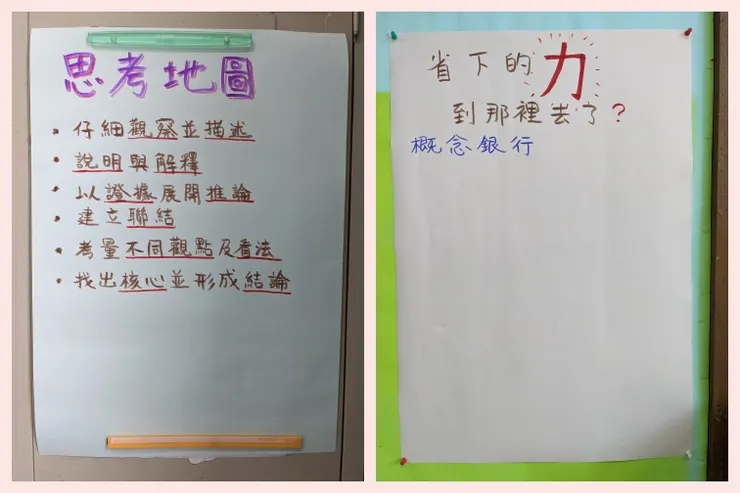 思考地圖
• 仔細觀察並描述
• 說明與解釋
• 以證據展開推論
• 建立聯結
• 考量不同觀點及看法
• 找出核心並形成結論
省下的力
到那裡去了?
概念銀行